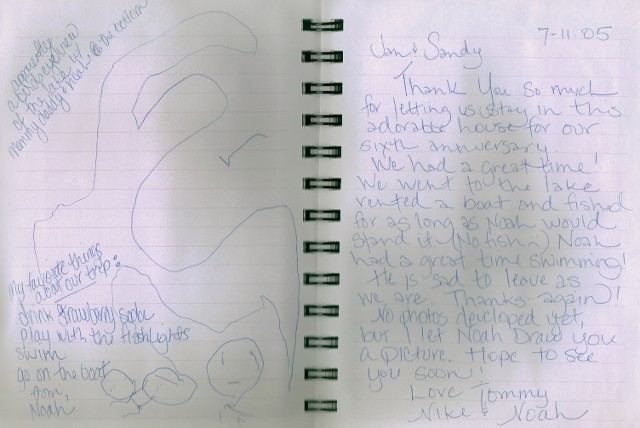 apparently
a birds eye view
of the lake w/
mommy daddy & Noah @ the bottom
My favorite things
about our trip:
drink strawberry soda
play with the flashlights
swim
go on the boat
from,
Noah
7-11-05
Jan & Sandy
Thank You so much
for letting us stay in this
adorable house for our
sixth anniversary.
We had a great time!
We went to the lake
rented a boat and fished
for as long as Noah would
stand it (No fish :) Noah
had a great time swimming!
He is sad to leave as
we are. Thanks again!
No photos developed yet,
but I let Noah Draw you
a picture. Hope to see
you soon!
Love Tommy
Nike & Noah